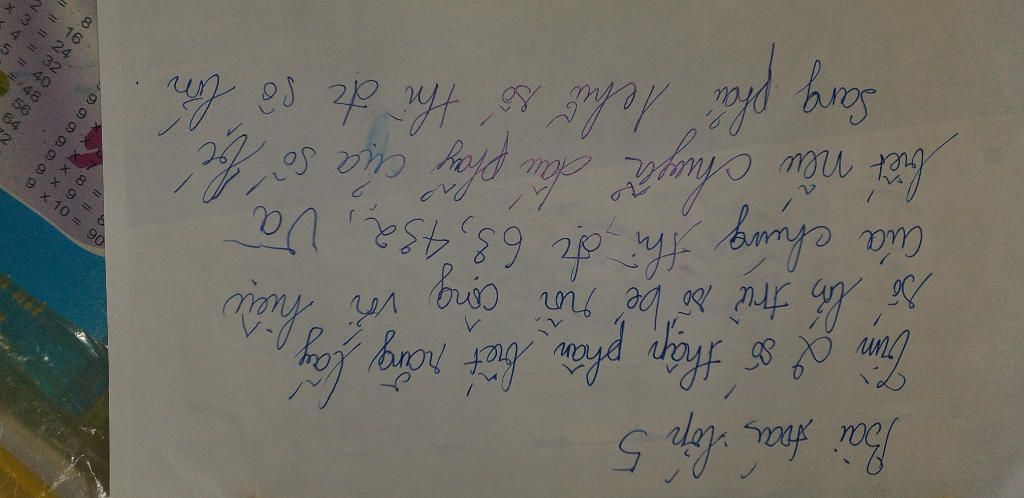 Bài toán lớp 5
Tìm 2 số thập phân biết rằng lấy
số lớn trừ số bé rồi cộng với hiệu
của chúng thì đc 63,432, Và
biết nếu chuyển dấu phẩy của số bé
sang phải 1 chữ số thì đc số lớn
8
16
24
32
40
48
56
64
72
9 × 8 =
9 × 9 = 8
9 × 10 = 90